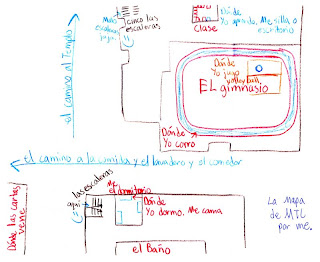 Más
escaleras
aquí.
cinco las
escaleras
Clase
Dónde
Yo aprendo. Me silla o
escritorio
el camino al Templo
Dónde
Yo juego
volleyball
El gimnasio
Dónde
Yo corro
el camino a la comida y el lavadero y el comedor
Dónde las cartas
viene
las escaleras
aquí
Me
el dormitorio
Dónde
Yo dormo. Me cama
el Baño
La Mapa
de MTC
por me.